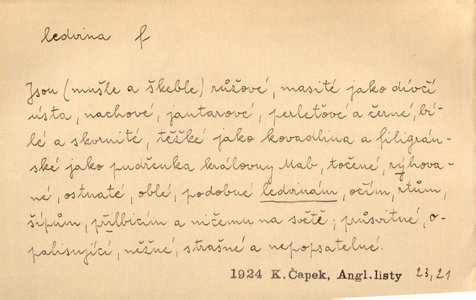 ledvina f
Jsou (mušle a škeble) růžové, masité jako dívčí
ústa, nachové, jantarové, perleťové a černé, bí-
lé a skvrnité, těžké jako kovadlina a filigrán-
ské jako pudřenka královny Mab, točené, rýhova-
né, ostnaté, oblé, podobné ledvinám, očím, rtům,
šípům, přilbicím a ničemu na světě; průsvitné, o-
palisující, něžné, strašné a nepopsatelné.
1924 K. Čapek, Angl. listy 23, 21